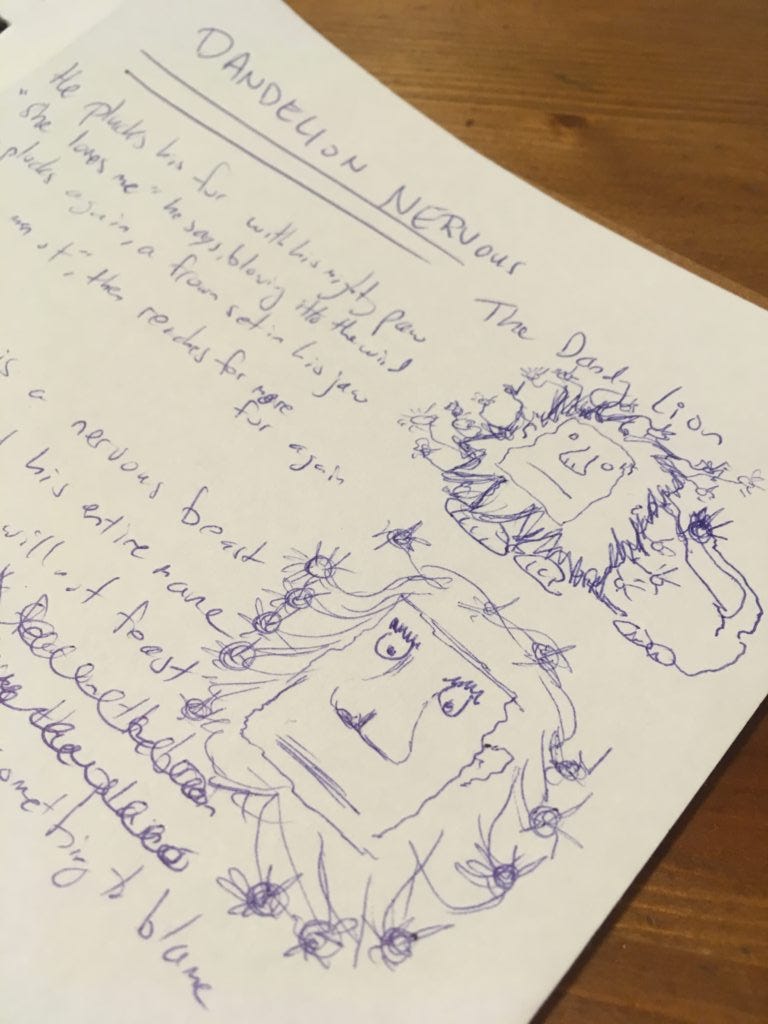 DANDELION NERVOUS
He plucks his fur with his mighty paw
"she loves me" he says, blowing it to the wind
plucks again, a frown set in his jaw
not", then reaches for more
fur again
The Dandy Lion
is a nervous beast
his entire mane
will not feast
something to blame